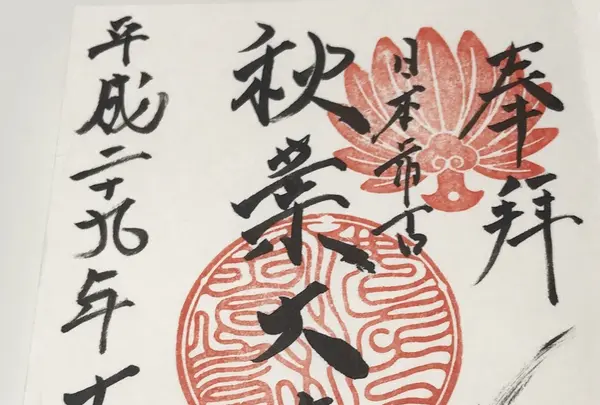 奉拝
日本希古
秋葉大
平成二十九年十